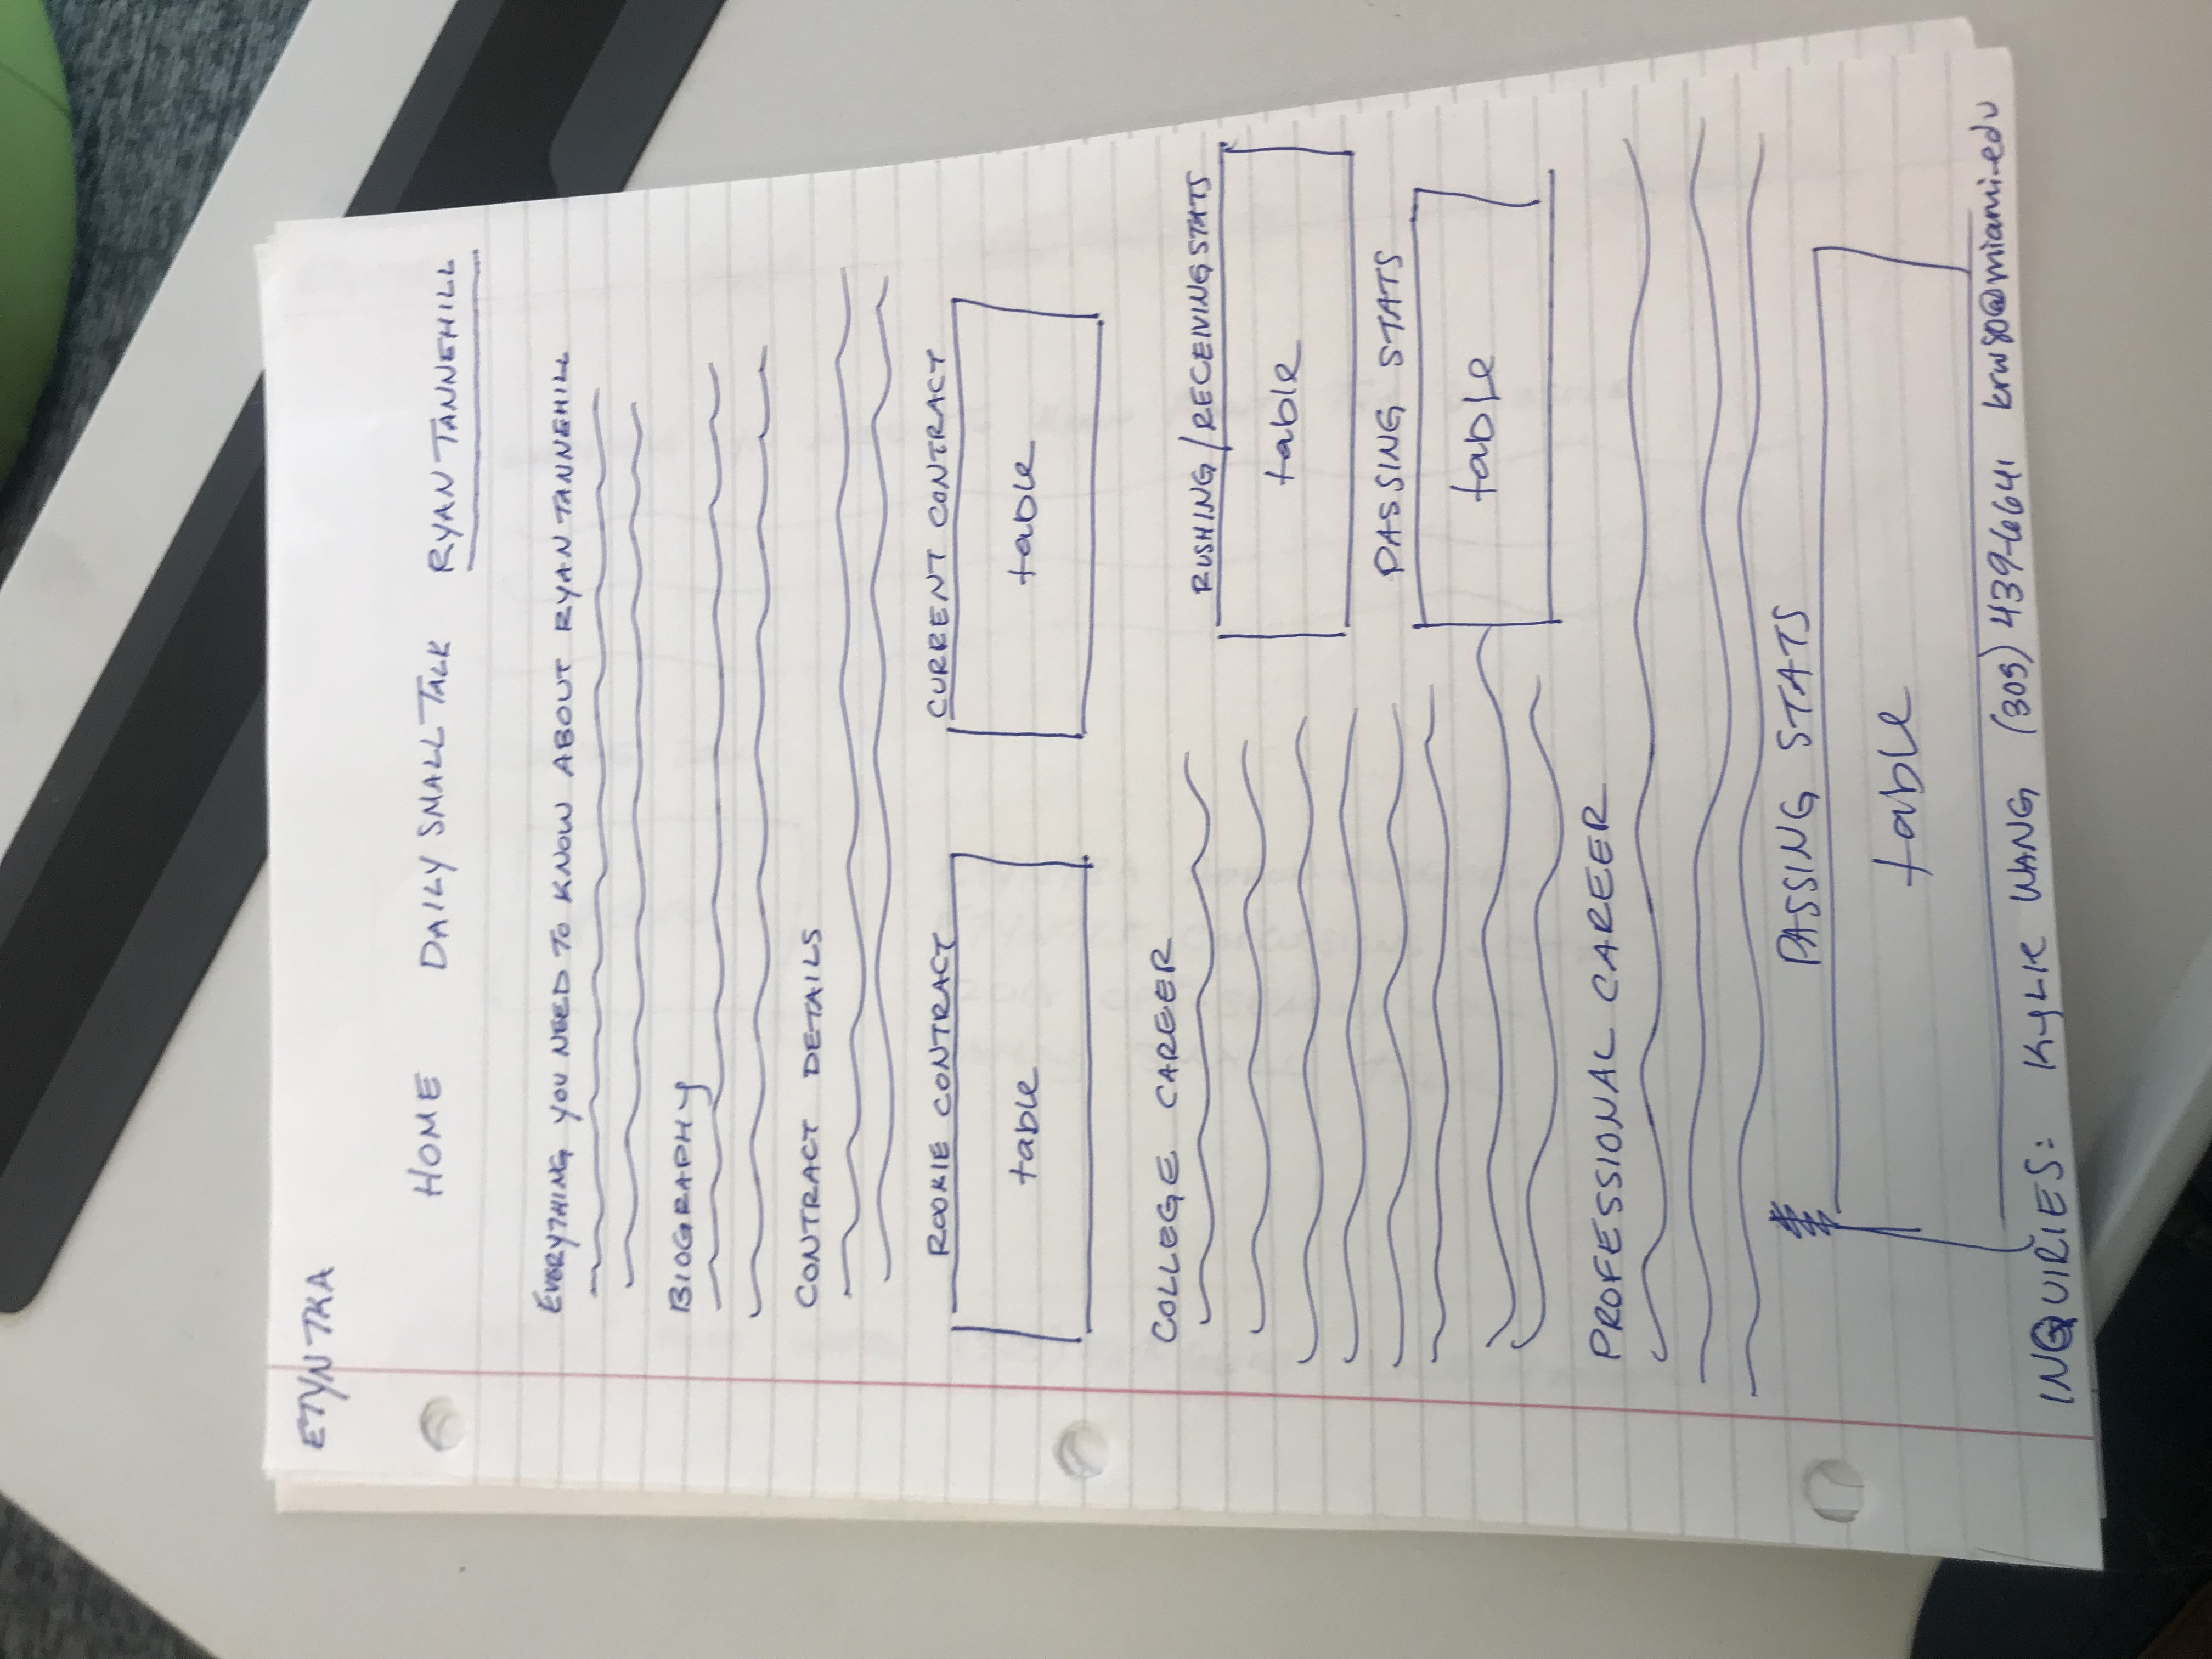 ETYNTKA
HOME DAILY SMALL TALK RYAN TANNEHILL
EVERYTHING YOU NEED TO KNOW ABOUT RYAN TANNEHILL
BIOGRAPHY
CONTRACT DETAILS
ROOKIE CONTRACT CURRENT CONTRACT
table table
COLLEGE CAREER
RUSHING/RECEIVING STATS
table
PASSING STATS
table
PROFESSIONAL CAREER
PASSING STATS
table
INQUIRIES: KYLIE WANG (305) 439-6641 krw80@miami.edu